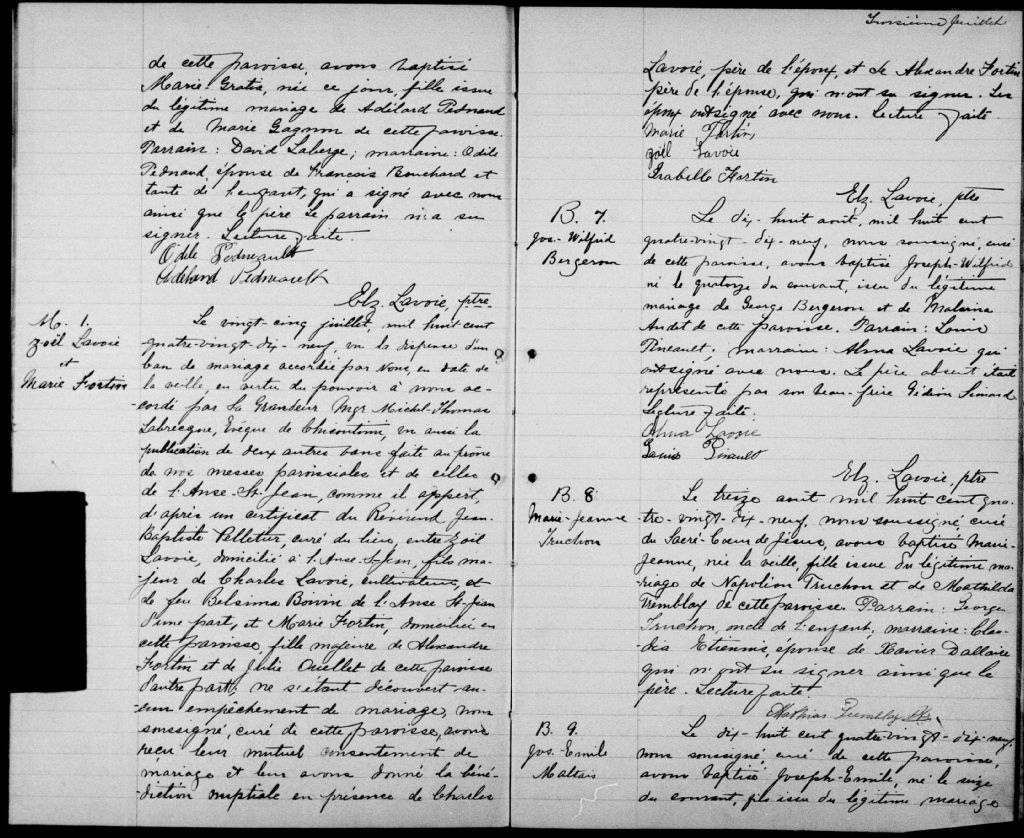 de cette paroisse, avons baptisé
Marie-Gratia, née ce jour, fille issue
du légitime mariage de Adélard Pednaud
et de Marie Gagnon de cette paroisse.
Parrain: David Laberge; marraine: Odile
Pednaud, épouse de François Bouchard et
tante de l'enfant, qui a signé avec nous
ainsi que le père le parrain n'a su
signer. Lecture faite.
Odile Pedneault
Adélard Pedneault
Elz. Lavoie, ptre
M. 1.
Zoël Lavoie
et
Marie Fortin
Le vingt-cinq juillet, mil huit cent
quatre-vingt-dix-neuf, vu la dispense d'un
ban de mariage accordée par Nous, en date de
la veille, en vertu du pouvoir à nous ac-
cordé par Sa Grandeur Mgr Michel-Thomas
Labrecque, Evêque de Chicoutimi, vu aussi la
publication de deux autres bans faite au prône
de nos messes paroissiales et de celles
de l'Anse-St-Jean, comme il appert,
d'après un certificat du Révérend Jean-
Baptiste Pelletier, curé du lieu, entre Zoël
Lavoie, domicilié à l'Anse-St-Jean, fils ma-
jeur de Charles Lavoie, cultivateur, et
de feu Belsima Boivin de l'Anse St-Jean
d'une part, et Marie Fortin, domiciliée en
cette paroisse, fille majeure de Alexandre
Fortin et de Julie Ouellet de cette paroisse
d'autre part; ne s'étant découvert au-
cun empêchement de mariage, nous
soussigné, curé de cette paroisse, avons
reçu leur mutuel consentement de
mariage et leur avons donné la béné-
diction nuptiale en présence de Charles
Troisième feuillet
Lavoie, père de l'époux, et de Alexandre Fortin
père de l'épouse, qui n'ont su signer. Les
époux ont signé avec nous. Lecture faite.
Marie Fortin
Zoël Lavoie
Isabelle Fortin
Elz. Lavoie, ptre
B. 7.
Jos.-Wilfrid
Bergeron
Le dix-huit août, mil huit cent
quatre-vingt-dix-neuf, nous soussigné, curé
de cette paroisse, avons baptisé Joseph-Wilfrid
né le quatorze du courant, issu du légitime
mariage de George Bergeron et de Malvina
Audet de cette paroisse. Parrain: Louis
Pineault; marraine: Alma Lavoie qui
ont signé avec nous. Le père absent était
représenté par son beau-frère Gédéon Simard
Lecture faite.
Alma Lavoie
Louis Pineault
Elz. Lavoie, ptre
B. 8
Marie-Jeanne
Truchon
Le treize août mil huit cent qua-
tre-vingt-dix-neuf, nous soussigné, curé
du Sacré-Coeur de Jésus, avons baptisé Marie-
Jeanne, née la veille, fille issue du légitime ma-
riage de Napoléon Truchon et de Mathilda
Tremblay de cette paroisse. Parrain: George
Truchon, oncle de l'enfant; marraine: Clau-
dia Etienne, épouse de Xavier Dallaire
qui n'ont su signer ainsi que le
père. Lecture faite.
Mathias Tremblay Ptre
B. 9.
Jos.-Emile
Maltais
Le dix-huit cent quatre-vingt-dix-neuf,
nous soussigné, curé de cette paroisse,
avons baptisé Joseph-Emile, né le seize
du courant, fils issu du légitime mariage